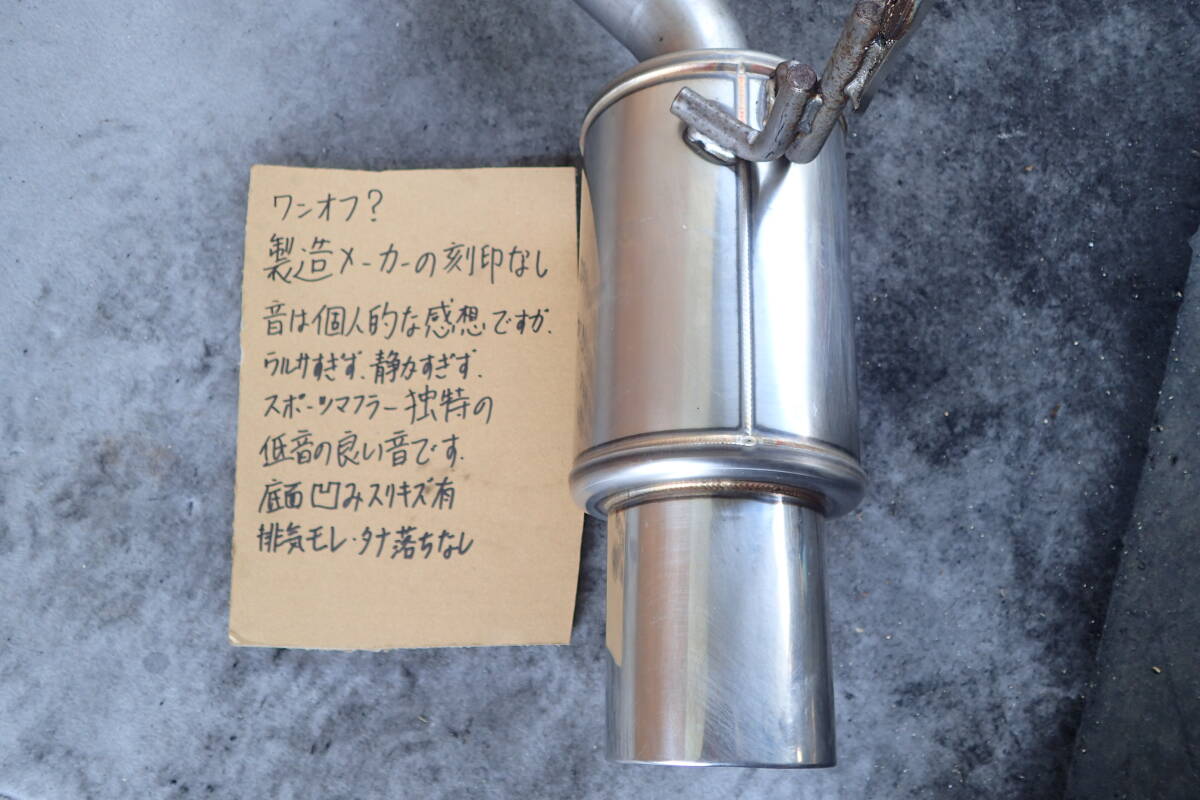 ワンオフ?
製造メーカーの刻印なし
音は個人的な感想ですが、
ウルサすぎず、静かすぎず、
スポーツマフラー独特の
低音の良い音です。
底面凹みスリキズ有
排気モレ・タナ落ちなし